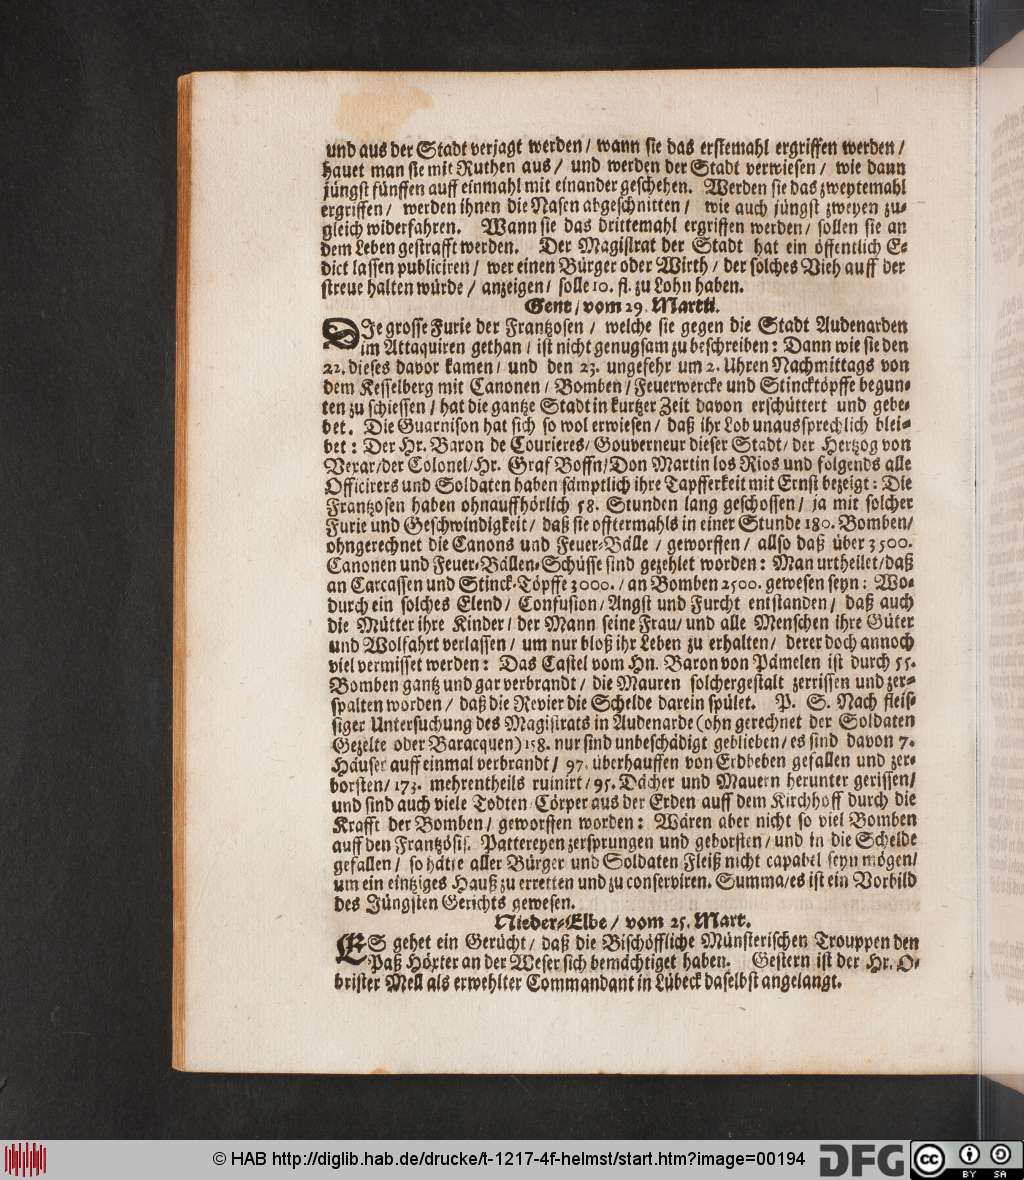 und aus der Stadt verjagt werden / wann sie das erstemahl ergriffen werden /
hauet man sie mit Ruthen aus / und werden der Stadt verwiesen / wie dann
jüngst fünffen auff einmahl mit einander geschehen. Werden sie das zweytemahl
ergriffen / werden ihnen die Nasen abgeschnitten / wie auch jüngst zweyen zu-
gleich widerfahren. Wann sie das drittemahl ergriffen werden / sollen sie an
dem Leben gestrafft werden. Der Magistrat der Stadt hat ein öffentlich E-
dict lassen publiciren / wer einen Bürger oder Wirth / der solches Vieh auff der
streue halten würde / anzeigen / solle 10. fl. zu Lohn haben.
Gent / vom 29. Martii.
DIe grosse Furie der Frantzosen / welche sie gegen die Stadt Audenarden
im Attaquiren gethan / ist nicht genugsam zu beschreiben: Dann wie sie den
22. dieses davor kamen / und den 23. ungefehr um 2. Uhren Nachmittags von
dem Kesselberg mit Canonen / Bomben / Feuerwercke und Stincktöpffe begun-
ten zu schiessen / hat die gantze Stadt in kurtzer Zeit davon erschüttert und gebe-
bet. Die Guarnison hat sich so wol erwiesen / daß ihr Lob unaussprechlich blei-
bet: Der Hr. Baron de Courieres / Gouverneur dieser Stadt / der Hertzog von
Vexar / der Colonel / Hr. Graf Boffn / Don Martin los Rios und folgends alle
Officirers und Soldaten haben sämptlich ihre Tapfferkeit mit Ernst bezeigt: Die
Frantzosen haben ohnauffhörlich 58. Stunden lang geschossen / ja mit solcher
Furie und Geschwindigkeit / daß sie offtermahls in einer Stunde 180. Bomben /
ohngerechnet die Canons und Feuer-Bälle / geworffen / allso daß über 3500.
Canonen und Feuer-Bällen-Schüsse sind gezehlet worden: Man urtheilet / daß
an Carcassen und Stinck-Töpffe 3000. / an Bomben 2500. gewesen seyn: Wo-
durch ein solches Elend / Confusion / Angst und Furcht entstanden / daß auch
die Mütter ihre Kinder / der Mann seine Frau / und alle Menschen ihre Güter
und Wolfahrt verlassen / um nur bloß ihr Leben zu erhalten / derer doch annoch
viel vermisset werden: Das Castel vom Hn. Baron von Pämelen ist durch 55.
Bomben gantz und gar verbrandt / die Mauren solchergestalt zerrissen und zer-
spalten worden / daß die Revier die Schelde darein spület. P. S. Nach fleis-
siger Untersuchung des Magistrats in Audenarde (ohn gerechnet der Soldaten
Gezelte oder Baracquen) 158. nur sind unbeschädigt geblieben / es sind davon 7.
Häuser auff einmal verbrandt / 97. überhauffen von Erdbeben gefallen und zer-
borsten / 173. mehrentheils ruinirt / 95. Dächer und Mauern herunter gerissen /
und sind auch viele Todten-Cörper aus der Erden auff dem Kirchhoff durch die
Krafft der Bomben / geworffen worden: Wären aber nicht so viel Bomben
auff den Frantzösis. Pattereyen zersprungen und geborsten / und in die Schelde
gefallen / so hätte aller Bürger und Soldaten Fleiß nicht capabel seyn mögen /
um ein eintziges Hauß zu erretten und zu conserviren. Summa / es ist ein Vorbild
des Jüngsten Gerichts gewesen.
Nieder-Elbe / vom 25. Mart.
ES gehet ein Gerücht / daß die Bischöffliche Münsterischen Trouppen den
Paß Höxter an der Weser sich bemächtiget haben. Gestern ist der Hr. O-
brister Mell als erwehlter Commandant in Lübeck daselbst angelangt.
© HAB http://diglib.hab.de/drucke/t-1217-4f-helmst/start.htm?image=00194
DFG
cc BY SA